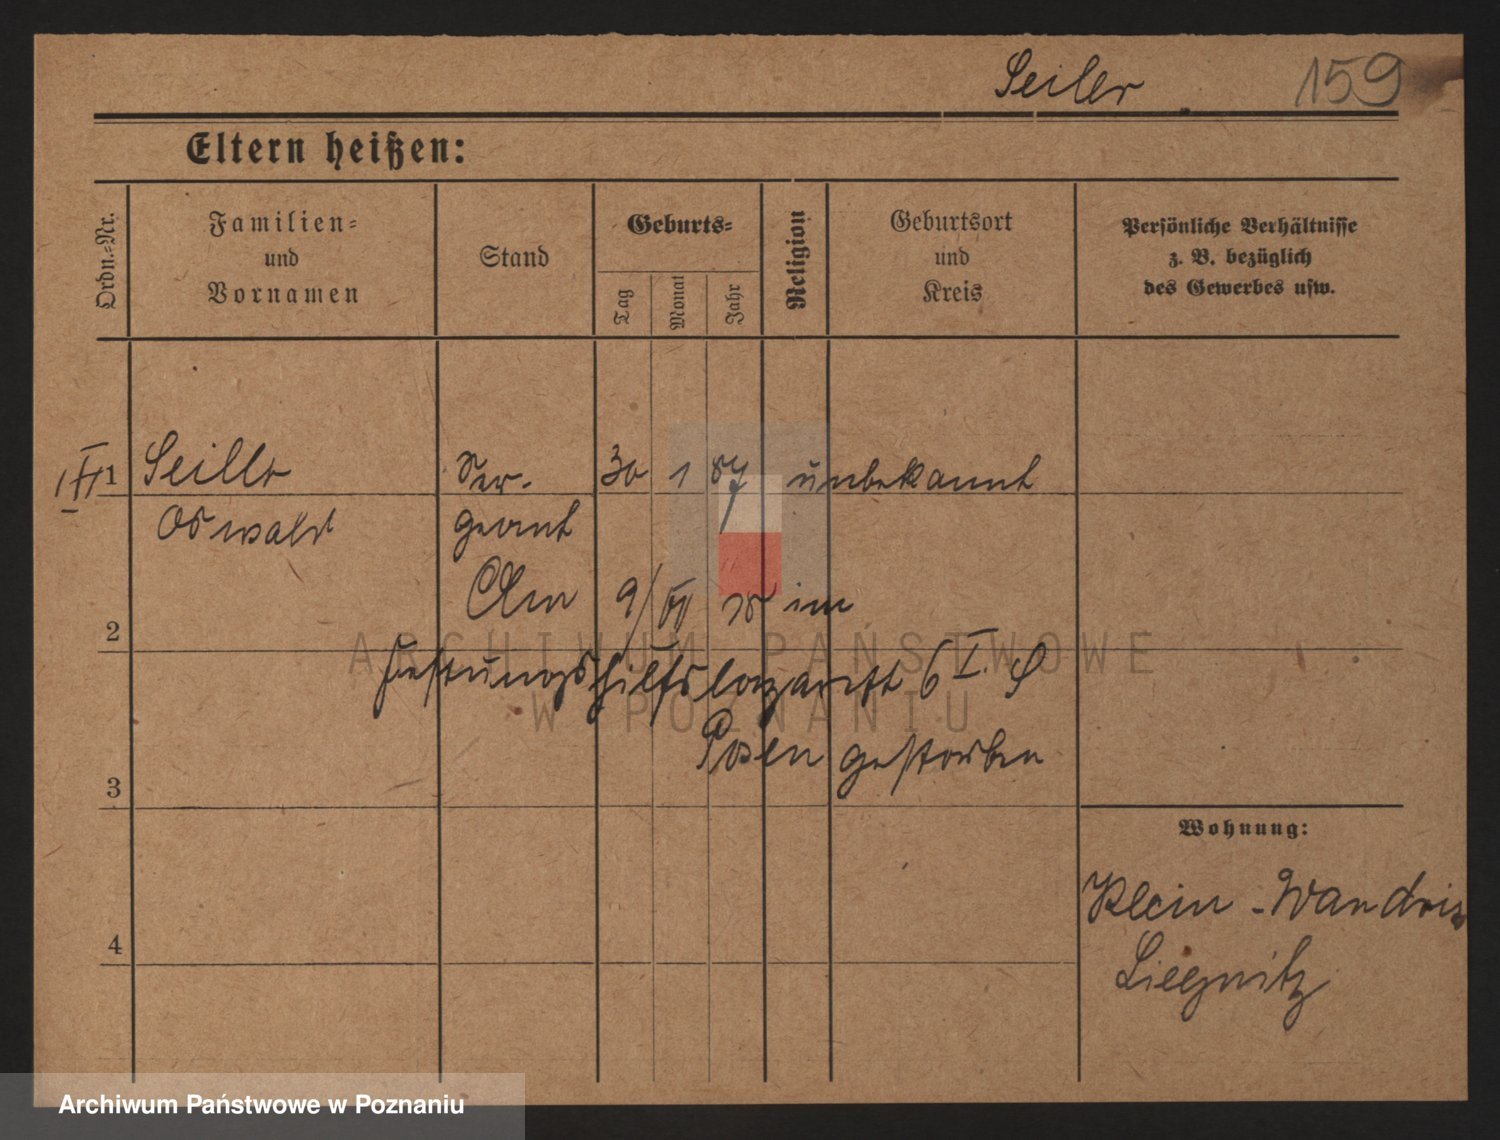 Seiler 159
Eltern heißen:
Ordn.-Nr.
Familien-
und
Vornamen
Stand
Geburts-
Tag
Monat
Jahr
Religion
Geburtsort
und
Kreis
Persönliche Verhältnisse
z. B. bezüglich
des Gewerbes usw.
1 Seiler Ser- 30 1 87 unbekannt
Oswald geant
Am 9/VI 18 im
2
Festungshilfslazarett 6 I. S
Posen gestorben
3
Wohnung:
Klein-Wandris
4
Liegnitz
ARCHIWUM PAŃSTWOWE
W POZNANIU
Archiwum Państwowe w Poznaniu